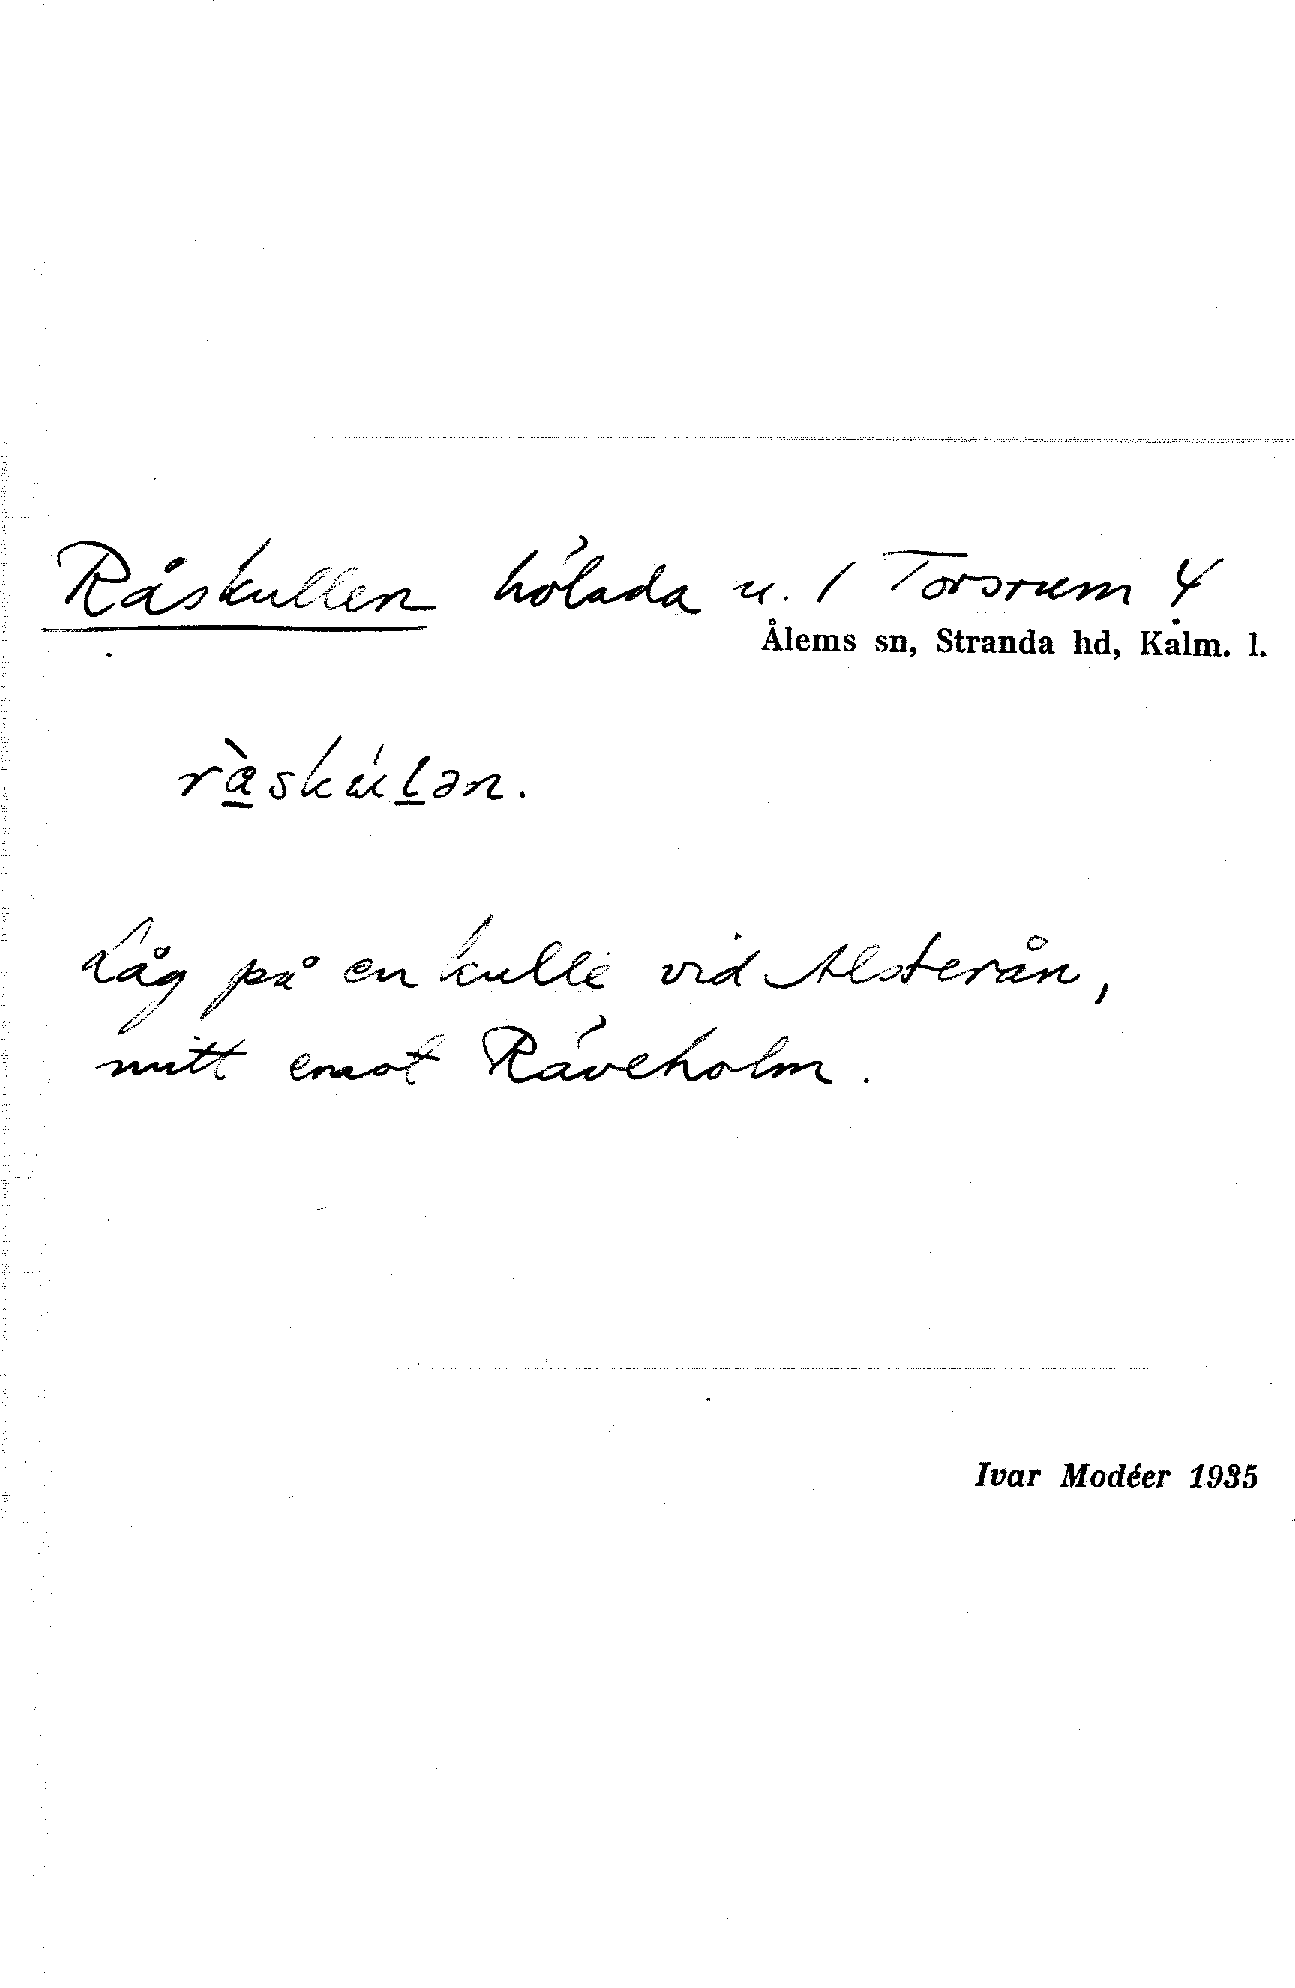 Råskullen hölada u. 1 Torsrum 4
Ålems sn, Stranda hd, Kalm. l.
ràskúlən.
Låg på en kulle vid Alsterån,
mitt emot Räveholm.
Ivar Modéer 1935